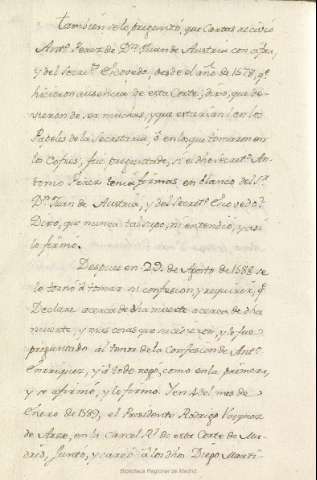 tambien se le preguntó, que Cartas recivió
Antº. Perez de Dⁿ. Juan de Austria con cifra,
y del Secretº. Escovedo, desde el año de 1578, qᵉ
hicieron ausencia de esta Corte; dixo, que de-
vieron de ser muchas, y que estarían en los
Papeles de la Secretaria, ó en los que tomaron en
los Cofres, fue preguntado, si el dho Secretº. An-
tonio Perez tenía firmas en blanco del Sʳ.
Dⁿ. Juan de Austria, y del Secretº. Escovedo?
Dixo, que nunca tal supo, ni entendió, y asi
lo firmó.
Despues en 29. de Agosto de 1588 se
le tornó á tomar su confesion, y requirir, qᵉ
Declare acerca de dha muerte acerca de dha
muerte, y mas cosas que
preguntado al tenor de la Confesion de Antº.
Enrriquez, y á todo negó, como en la primera,
y se afirmó, y lo firmó. Y en 4 del mes de
Enero de 1589, el Presidente Rodrigo Vazquez
de Arze, en la Carcel Rˡ. de esta Corte de Ma-
drid, Juntó, y careó á los dhos Diego Marti-
Biblioteca Regional de Madrid